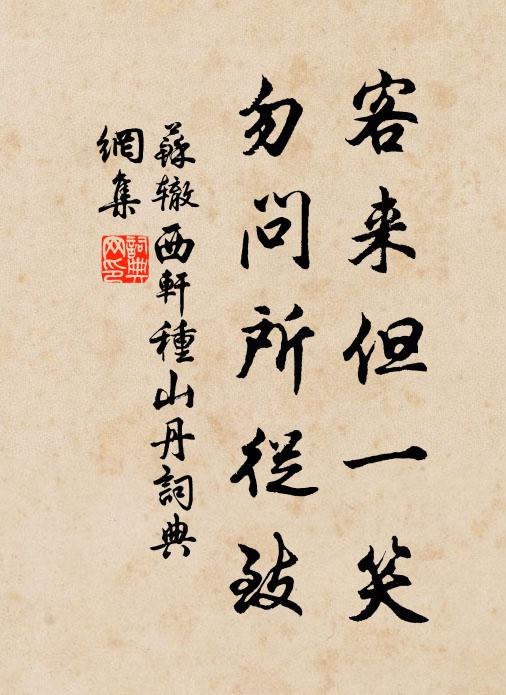 客来但一笑
勿問所從致
蘇辙西軒種山丹詞典
網集
詞典
网印